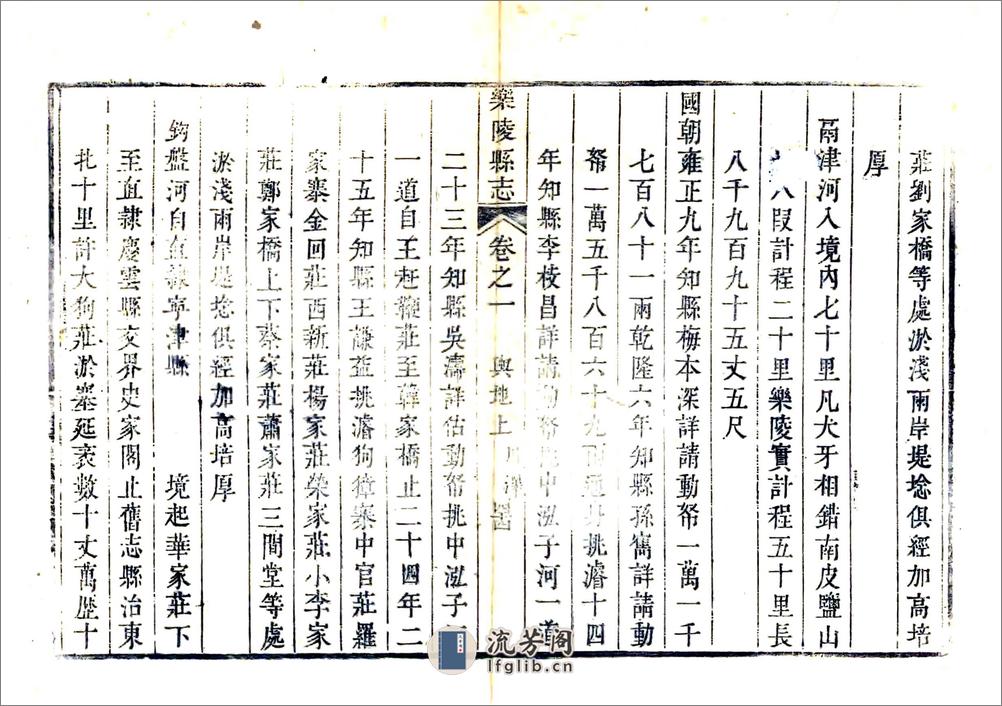 莊劉家橋等處淤淺兩岸堤埝俱經加高培
厚
鬲津河入境內七十里凡犬牙相錯南皮鹽山
八段計程二十里樂陵實計程五十里長
八千九百九十五丈五尺
國朝雍正九年知縣梅本深詳請動帑一萬一千
七百八十一兩乾隆六年知縣孫寯詳請動
帑一萬五千八百六十九兩通身挑濬十四
年知縣李枝昌詳請動帑挑中泓子河一道
樂陵縣志
卷之一
輿地上
二十三年知縣吳濤詳估動帑挑中泓子
一道自王赶鞭莊至韓家橋止二十四年二
十五年知縣王謙益挑濬狗獐寨中官莊羅
家寨金回莊西新莊楊家莊榮家莊小李家
莊鄭家橋上下蔡家莊蕭家莊三間堂等處
淤淺兩岸堤埝俱經加高培厚
鉤盤河自直隸寧津縣
境起華家莊下
至直隸慶雲縣交界史家閣止舊志縣治東
北十里許大狗莊淤塞延袤數十丈萬歷十
流芳阁
lfglib.cn